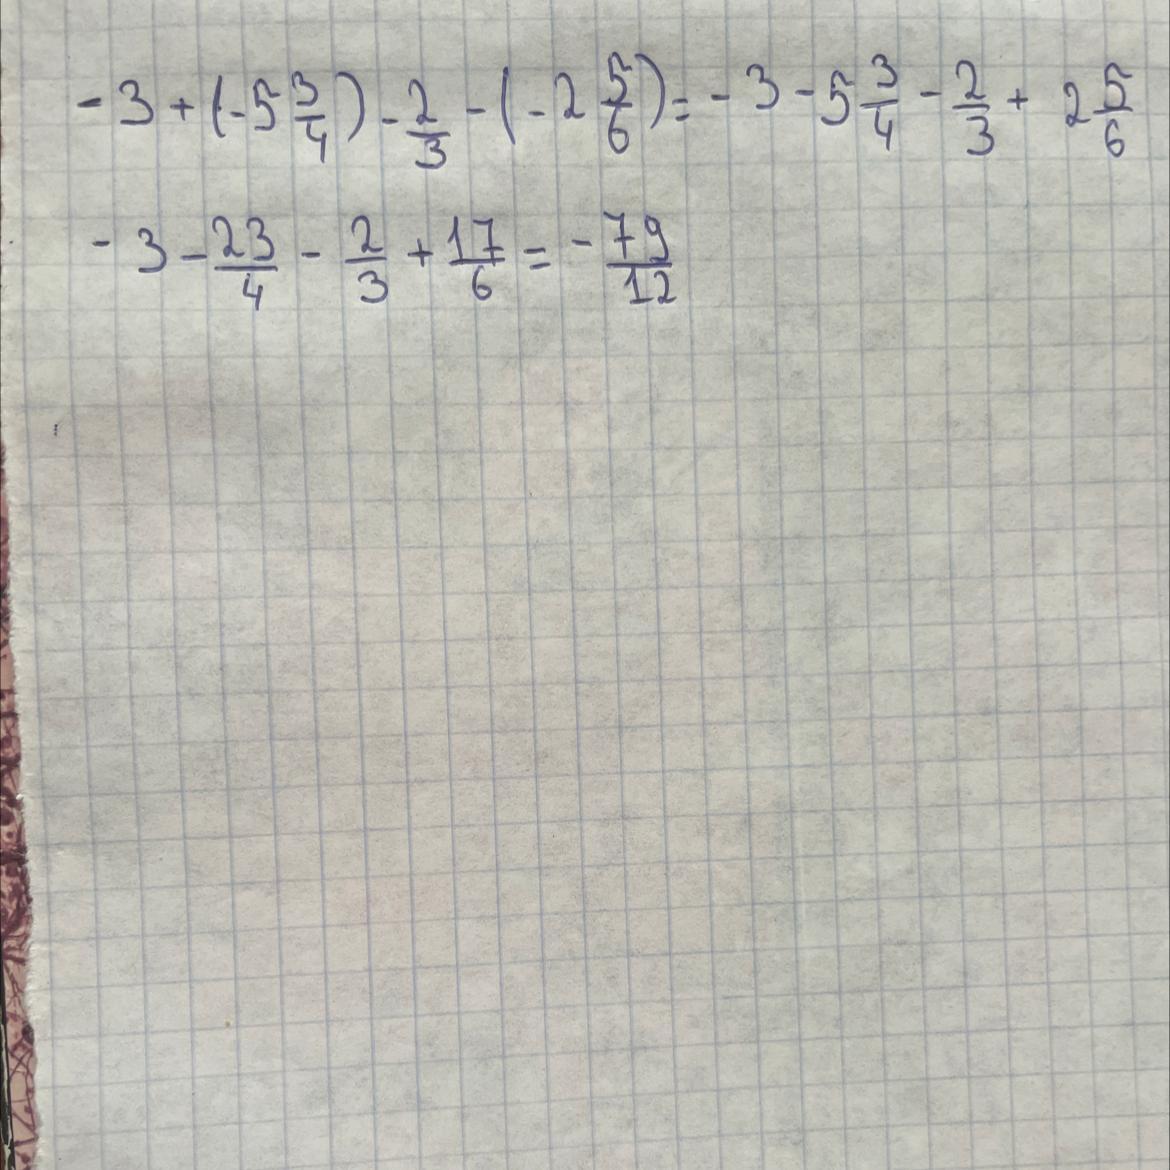 - 3 + (-5 3/4) - 2/3 - (-2 5/6) = - 3 - 5 3/4 - 2/3 + 2 5/6
- 3 - 23/4 - 2/3 + 17/6 = - 79/12